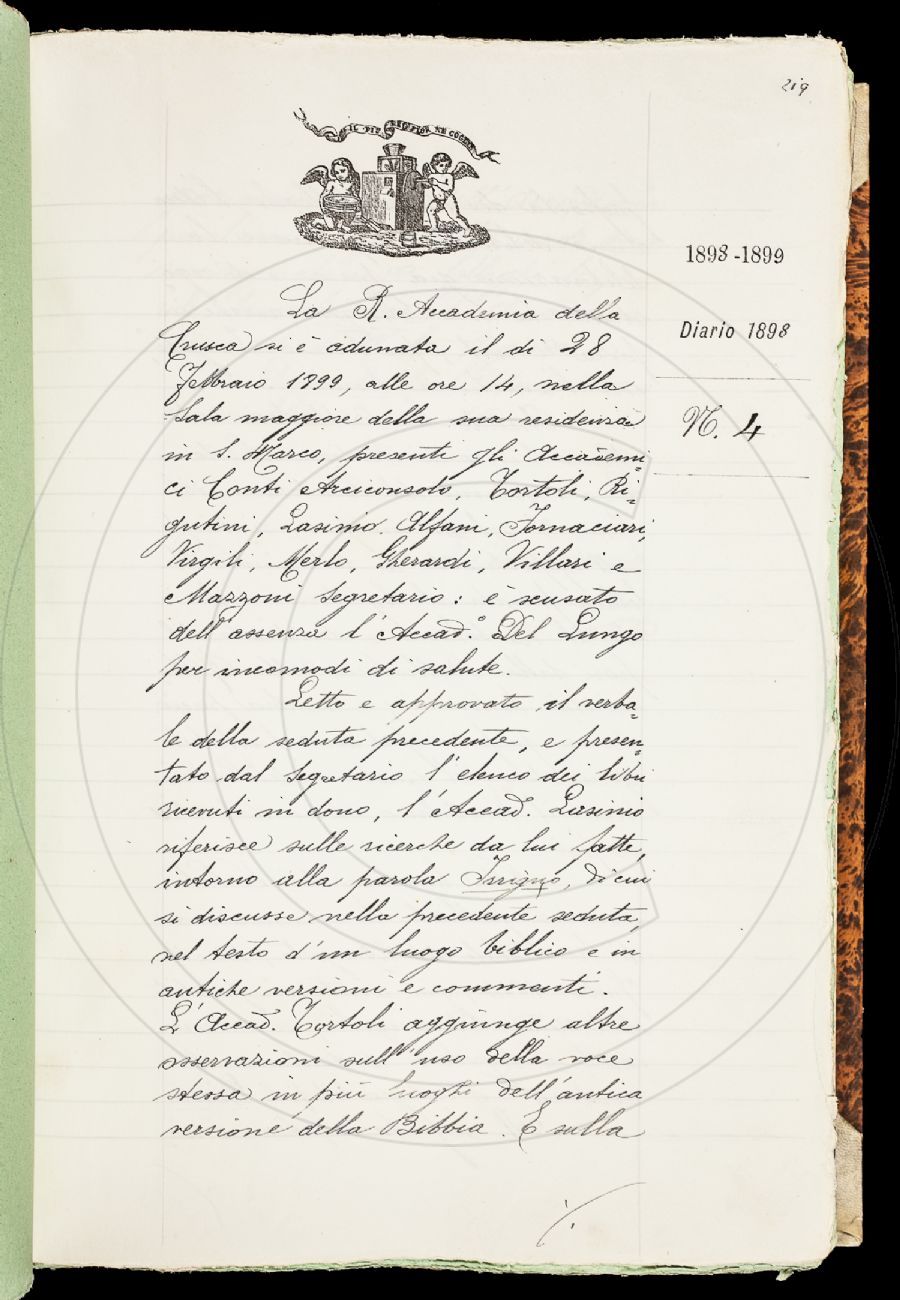 219
IL PIÙ BEL FIOR NE COGLIE
1898-1899
Diario 1898
N. 4
La R. Accademia della
Crusca si è adunata il dì 28
Febbraio 1799, alle ore 14, nella
Sala maggiore della sua residenza
in S. Marco, presenti gli Accademi=
ci Conti Arciconsolo, Tortoli, Ri=
gutini, Lasinio, Alfani, Fornaciari,
Virgili, Merlo, Gherardi, Villari e
Mazzoni Segretario: è scusato
dell'assenza l'Accad.º Del Lungo
per incomodi di salute.
Letto e approvato il verba=
le della seduta precedente, e presen=
tato dal Segretario l'elenco dei libri
ricevuti in dono, l'Accad. Lasinio
riferisce sulle ricerche da lui fatte,
intorno alla parola Irrigno, di cui
si discusse nella precedente seduta,
nel testo d'un luogo biblico e in
antiche versioni e commenti.
L'Accad. Tortoli aggiunge altre
osservazioni sull'uso della voce
stessa in più luoghi dell'antica
versione della Bibbia. E sulla